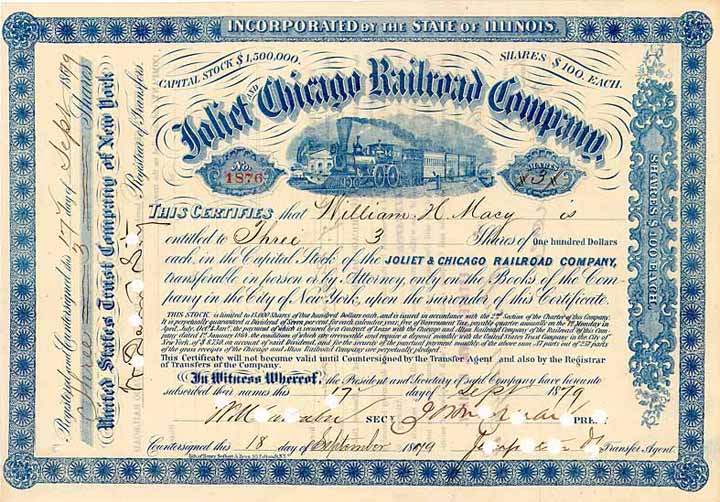 INCORPORATED BY THE STATE OF ILLINOIS.
CAPITAL STOCK $1,500,000.
SHARES $100. EACH.
Joliet AND Chicago Railroad Company.
No. 1876
SHARES 3
THIS CERTIFIES that William H. Macy is
entitled to Three 3 Shares of One hundred Dollars
each, in the Capital Stock of the JOLIET & CHICAGO RAILROAD COMPANY,
transferable in person or by Attorney, only on the Books of the Com-
pany in the City of New York, upon the surrender of this Certificate.
THIS STOCK is limited to 15,000 Shares of One hundred Dollars each, and is issued in accordance with the 2nd Section of the Charter of this Company.
It is perpetually guaranteed a Dividend of Seven per cent. for each calendar year, free of Government Tax, payable quarter annually on the 1st Monday in
April, July, Oct. & Jany., the payment of which is secured by a Contract of Lease with the Chicago and Alton Railroad Company of the Railroad of this Com-
pany dated 1st January 1864, the conditions of which are irrevocable and require a deposit monthly with the United States Trust Company in the City of
New York, of $ 8,750 on account of said Dividend, and for the security of the punctual payment monthly of the above sum
of the gross receipts of the Chicago and Alton Railroad Company are perpetually pledged.
This Certificate will not become valid until Countersigned by the Transfer Agent, and also by the Registrar
of Transfers of the Company.
In Witness Whereof, the President and Secretary of said Company have hereunto
subscribed their names this 17 day of Sept 1879
SECY.
PREST.
Countersigned this 18 day of September 1879
Transfer Agent.
Registered and Countersigned this 17 day of Sept 1879
3 Shares
United States Trust Company of New York
Registrar of Transfers.
SHARES $100 EACH